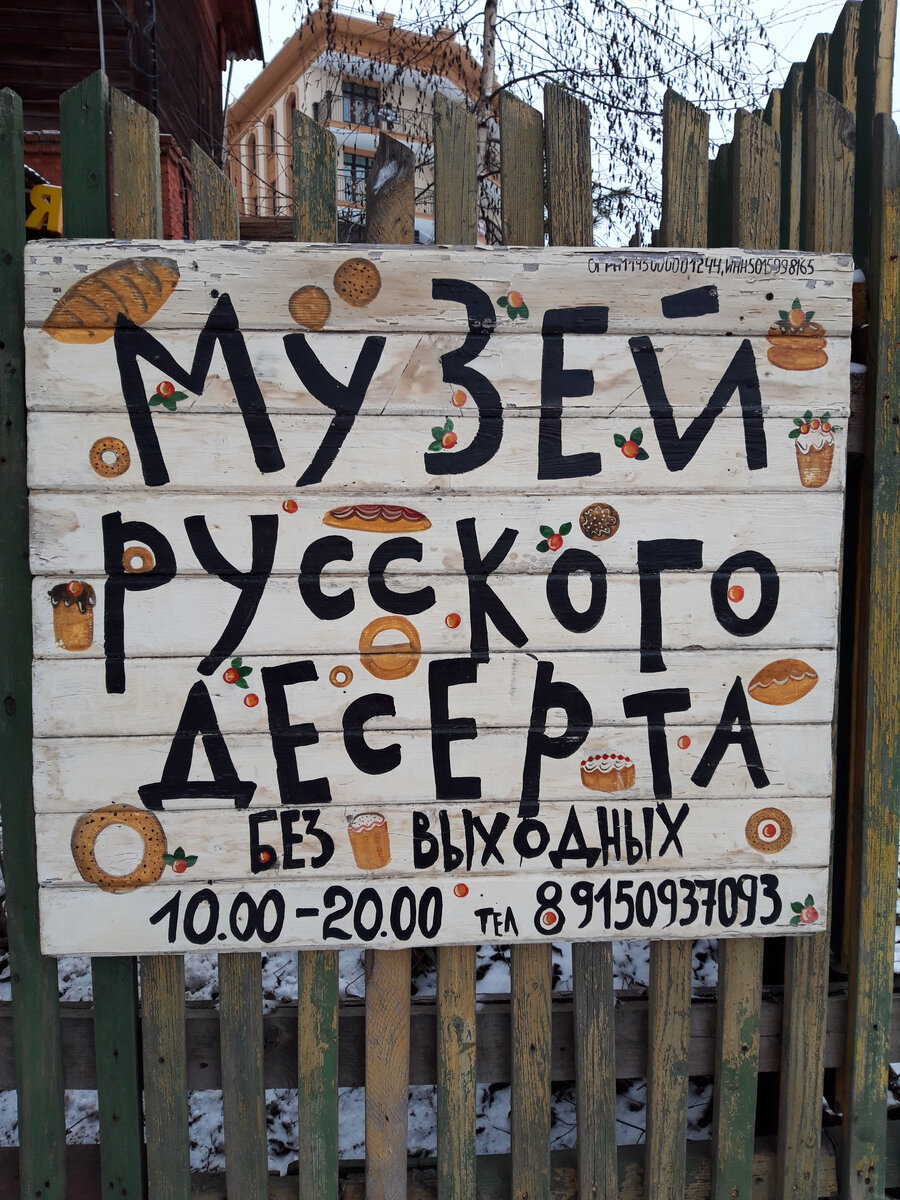 ОГРН1145000001244, ИНН5015998165
МУЗЕЙ
РУССКОГО
ДЕСЕРТА
БЕЗ ВЫХОДНЫХ
10.00-20.00 ТЕЛ 89150937093
Я